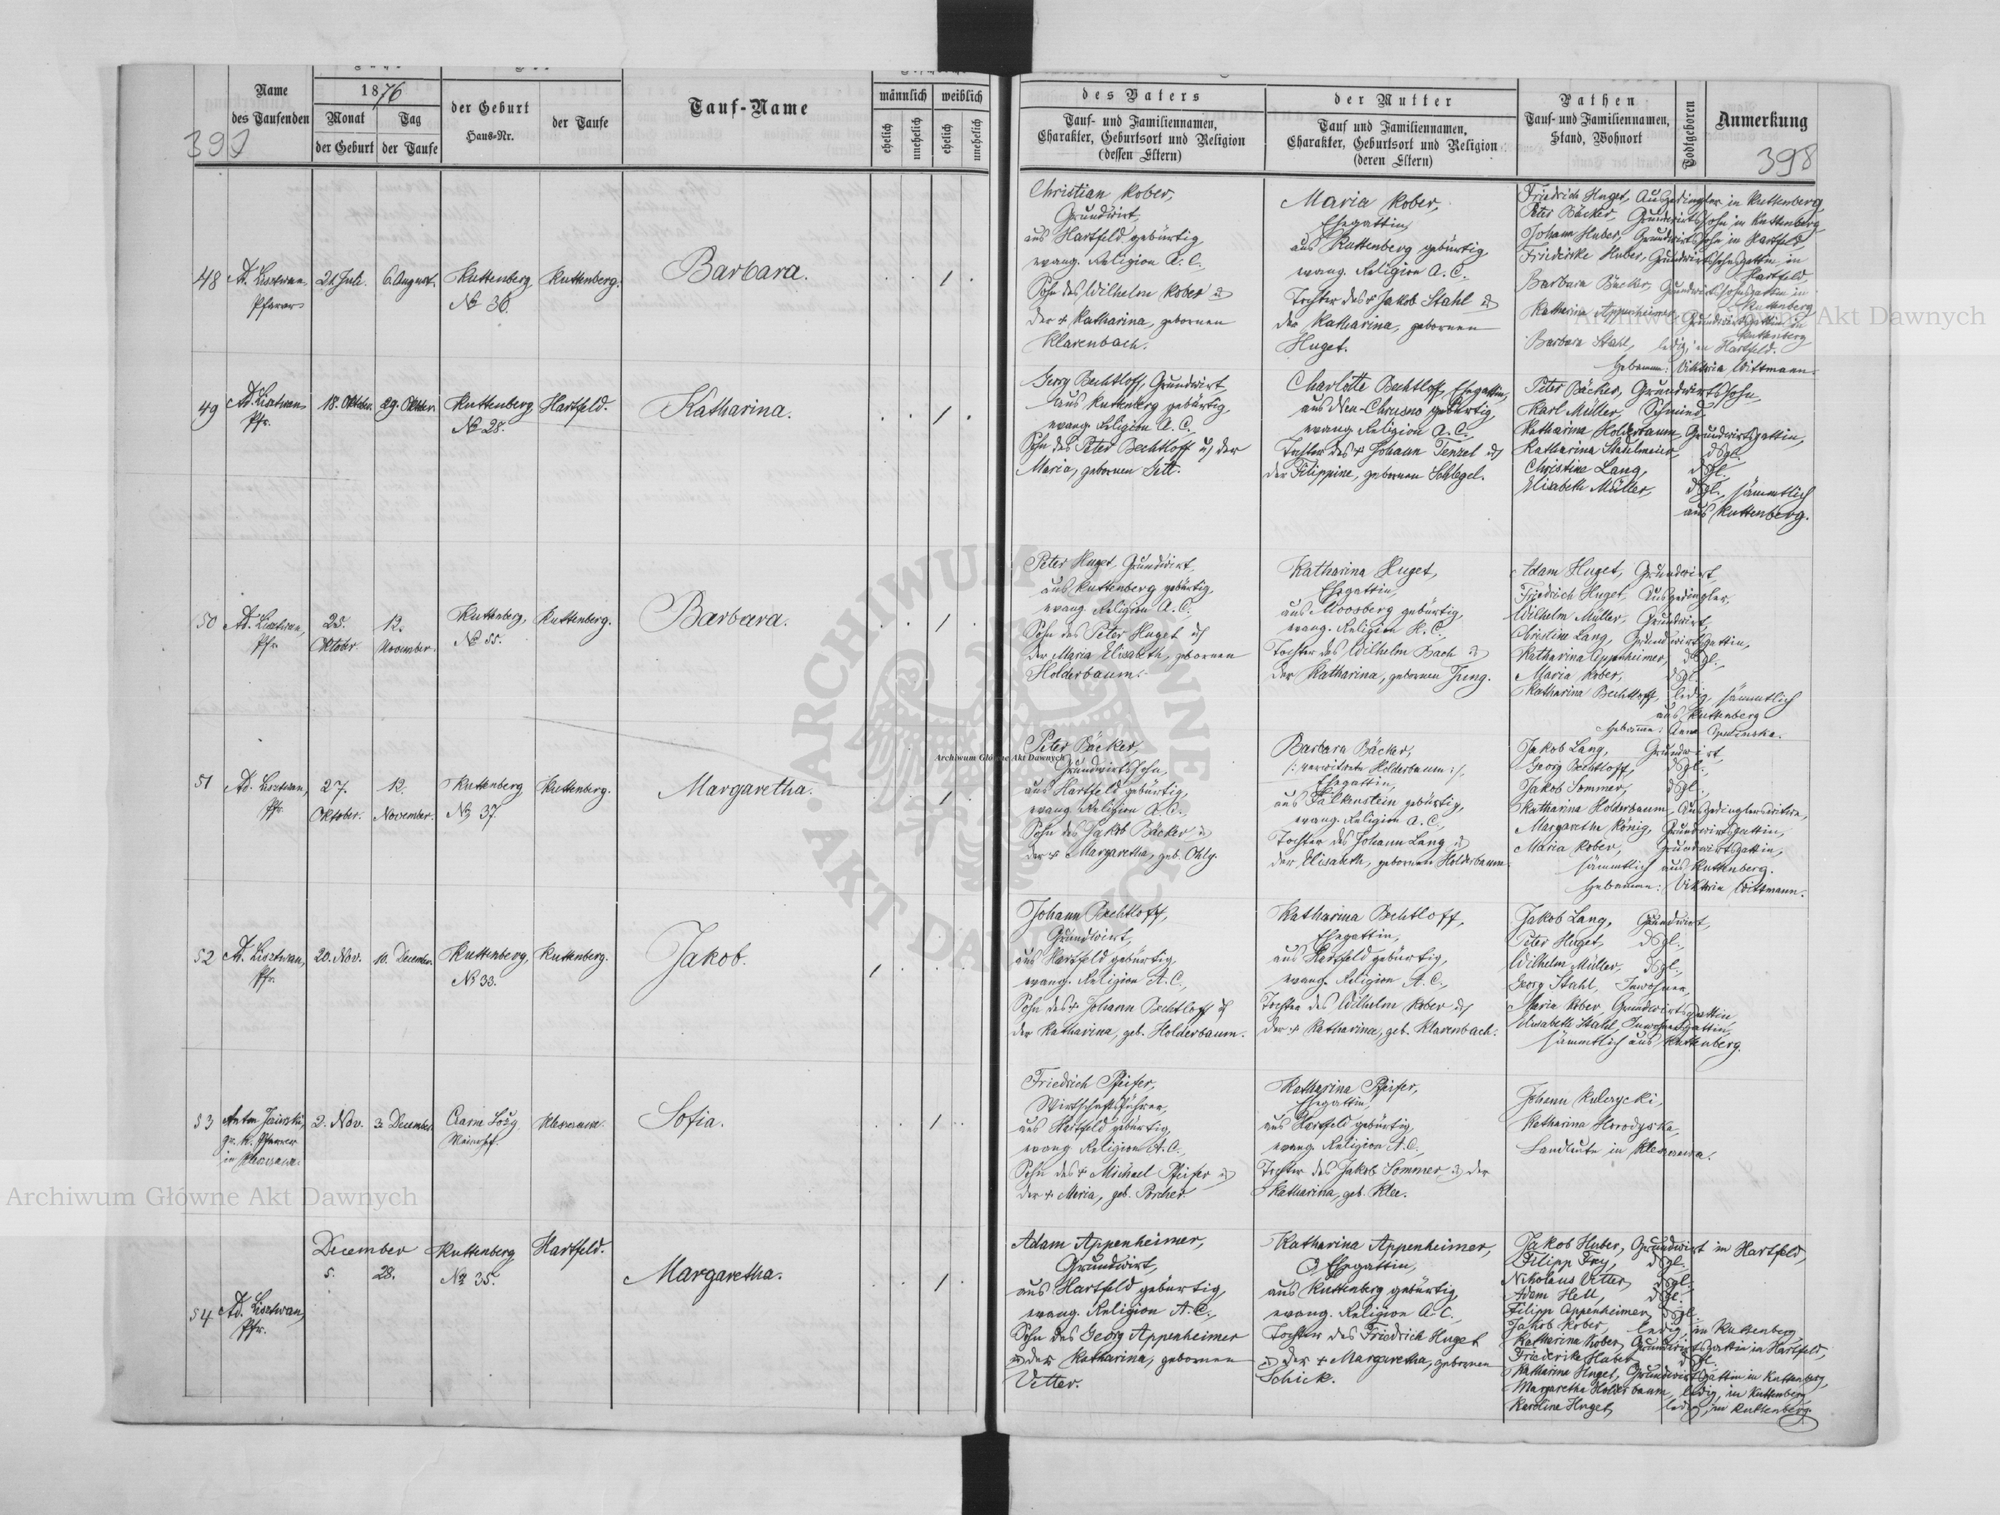 Name
des Taufenden
1876
Monat
Tag
der Geburt
der Taufe
der Geburt
Haus-Nr.
der Taufe
Tauf-Name
männlich
weiblich
ehelich
unehelich
ehelich
unehelich
des Vaters
Tauf- und Familiennamen,
Charakter, Geburtsort und Religion
(dessen Eltern)
der Mutter
Tauf und Familiennamen,
Charakter, Geburtsort und Religion
(deren Eltern)
Pathen
Tauf- und Familiennamen,
Stand, Wohnort
Todtgeboren
Anmerkung
398
48
Pfarrer
21. Juli.
6. August.
Kuttenberg
No 36.
Kuttenberg.
Barbara.
1
Christian Kober,
Grundwirt,
aus Hartfeld gebürtig,
evang. Religion A. C.,
Sohn des Wilhelm Kober u
der + Katharina, gebornen
Klarenbach.
Maria Kober,
Ehegattin,
aus Kuttenberg gebürtig,
evang. Religion A. C.,
Tochter des + Jakob Stahl u
der Katharina, gebornen
Huget.
Friedrich Huget, Ausgedingler in Kuttenberg,
Peter Bäcker, Grundwirtssohn in Kuttenberg
Johann Huber, Grundwirtssohn in Hartfeld
Friederike Huber, Grundwirtssohnsgattin in
Hartfeld
Barbara Bäcker, Grundwirtssohnsgattin in
Kuttenberg
Katharina Appenheimer, Grundwirtsgattin in
Kuttenberg
Barbara Stahl, ledig, in Hartfeld.
Hebamme: Viktoria Wittmann.
49
Pfr.
18. Oktober.
29. Oktober.
Kuttenberg
No 28.
Hartfeld.
Katharina.
1
Georg Bechtloff, Grundwirt,
aus Kuttenberg gebürtig,
evang. Religion A. C.,
Sohn des Peter Bechtloff u der
Maria, gebornen Sett.
Charlotte Bechtloff, Ehegattin,
aus Neu-Chrusno gebürtig,
evang. Religion A. C.,
Tochter des + Johann Tenzel u
der Filippine, gebornen Schlegel.
Peter Bäcker, Grundwirtssohn,
Karl Müller, Schmied,
Katharina Holderbaum, Grundwirtsgattin,
Katharina Stadelmeier, dsgl.
Christine Lang, dsgl.
Elisabeth Müller, dsgl., sämmtlich
aus Kuttenberg.
50
Pfr.
25.
Oktober.
12.
November.
Kuttenberg,
No 55.
Kuttenberg.
Barbara.
1
Peter Huget, Grundwirt,
aus Kuttenberg gebürtig,
evang. Religion A. C.,
Sohn des Peter Huget u
der Maria Elisabeth, gebornen
Holderbaum.
Katharina Huget,
Ehegattin,
aus Moosberg gebürtig,
evang. Religion H. C.,
Tochter des Wilhelm Bach u
der Katharina, gebornen Jung.
Adam Huget, Grundwirt,
Friedrich Huget, Ausgedingler,
Wilhelm Müller, Grundwirt,
Christine Lang, Grundwirtsgattin,
Katharina Appenheimer, dsgl.,
Maria Kober, dsgl.
Katharina Bechtloff, ledig, sämmtlich
aus Kuttenberg
Hebamme: Anna
51
Pfr.
27.
Oktober.
12.
November.
Kuttenberg
No 37.
Kuttenberg.
Margaretha.
1
Peter Bäcker,
Grundwirtssohn,
aus Hartfeld gebürtig,
evang. Religion A. C.,
Sohn des Jakob Bäcker u
der + Margaretha, geb. Ohly.
Barbara Bäcker,
/: verwitwete Holderbaum :/,
Ehegattin,
aus Falkenstein gebürtig,
evang. Religion A. C.,
Tochter des Johann Lang u
der Elisabeth, gebornen Holderbaum.
Jakob Lang, Grundwirt,
Georg Bechtloff, dsgl.,
Jakob Sommer, dsgl.,
Katharina Holderbaum, Ausgedinglerswitwe,
Margarethe König, Grundwirtsgattin,
Maria Kober, Grundwirtsgattin,
sämmtlich aus Kuttenberg.
Hebamme: Viktoria Wittmann.
52
Pfr.
20. Nov.
10. December.
Kuttenberg,
No 33.
Kuttenberg.
Jakob.
1
Johann Bechtloff,
Grundwirt,
aus Hartfeld gebürtig,
evang. Religion A. C.,
Sohn des + Johann Bechtloff u
der Katharina, geb. Holderbaum.
Katharina Bechtloff,
Ehegattin,
aus Hartfeld gebürtig,
evang. Religion A. C.,
Tochter des Wilhelm Kober u
der + Katharina, geb. Klarenbach.
Jakob Lang, Grundwirt,
Peter Huget, dsgl.,
Wilhelm Müller, dsgl.,
Georg Stahl, Inwohner,
Maria Kober, Grundwirtsgattin
Elisabeth Stahl, Inwohnersgattin,
sämmtlich aus Kuttenberg.
53
Anton
gr. k. Pfarrer
in
2. Nov.
3. December.
Sofia.
1
Friedrich Pfeifer,
Wirtschaftsführer,
aus Hartfeld gebürtig,
evang. Religion A. C.,
Sohn des + Michael Pfeifer u
der + Maria, geb. Porcher
Katharina Pfeifer,
Ehegattin,
aus Hartfeld gebürtig,
evang. Religion A. C.,
Tochter des Jakob Sommer u der
Katharina, geb. Klee.
Johann Kulczycki,
Katharina Horodyska,
Landleute in
54
Pfr.
December
5.
28.
Kuttenberg
No 35.
Hartfeld.
Margaretha.
1
Adam Appenheimer,
Grundwirt,
aus Hartfeld gebürtig,
evang. Religion A. C.,
Sohn des Georg Appenheimer
u der Katharina, gebornen
Vetter.
Katharina Appenheimer,
Ehegattin,
aus Kuttenberg gebürtig,
evang. Religion A. C.,
Tochter des Friedrich Huget
u der + Margaretha, gebornen
Schick.
Jakob Huber, Grundwirt in Hartfeld,
Filipp Frey, dsgl.
Nikolaus Vetter, dsgl.
Adam Hell, dsgl.
Filipp Appenheimer, dsgl.
Jakob Kober, ledig, in Kuttenberg
Katharina Kober, Grundwirtsgattin in Hartfeld,
Friederike Huber, dsgl.
Katharina Huget, Grundwirtsgattin in Kuttenberg,
Margaretha Holderbaum, ledig, in Kuttenberg
Karoline Huget, ledig, in Kuttenberg.
Archiwum Główne Akt Dawnych
Archiwum Główne Akt Dawnych
Archiwum Główne Akt Dawnych